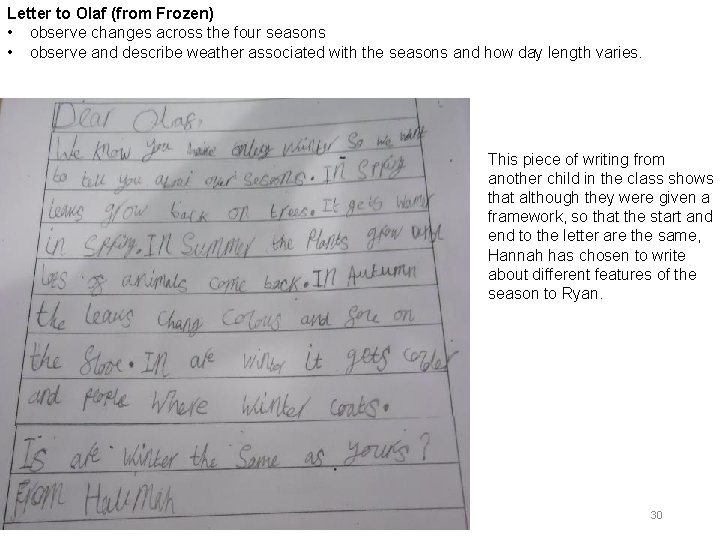 Letter to Olaf (from Frozen)
• observe changes across the four seasons
• observe and describe weather associated with the seasons and how day length varies.
Dear Olaf,
We know you have only winter so we want
to tell you about our seasons. IN SPring
leaus grow back on trees. It gets
in SPring. IN Summer the Plants grow
of animals come back. IN Autumn
the leaus chang colous and on
the floor. IN are winter it gets
and PeoPle where winter coats.
Is are winter the same as yours?
From
This piece of writing from
another child in the class shows
that although they were given a
framework, so that the start and
end to the letter are the same,
Hannah has chosen to write
about different features of the
season to Ryan.
30